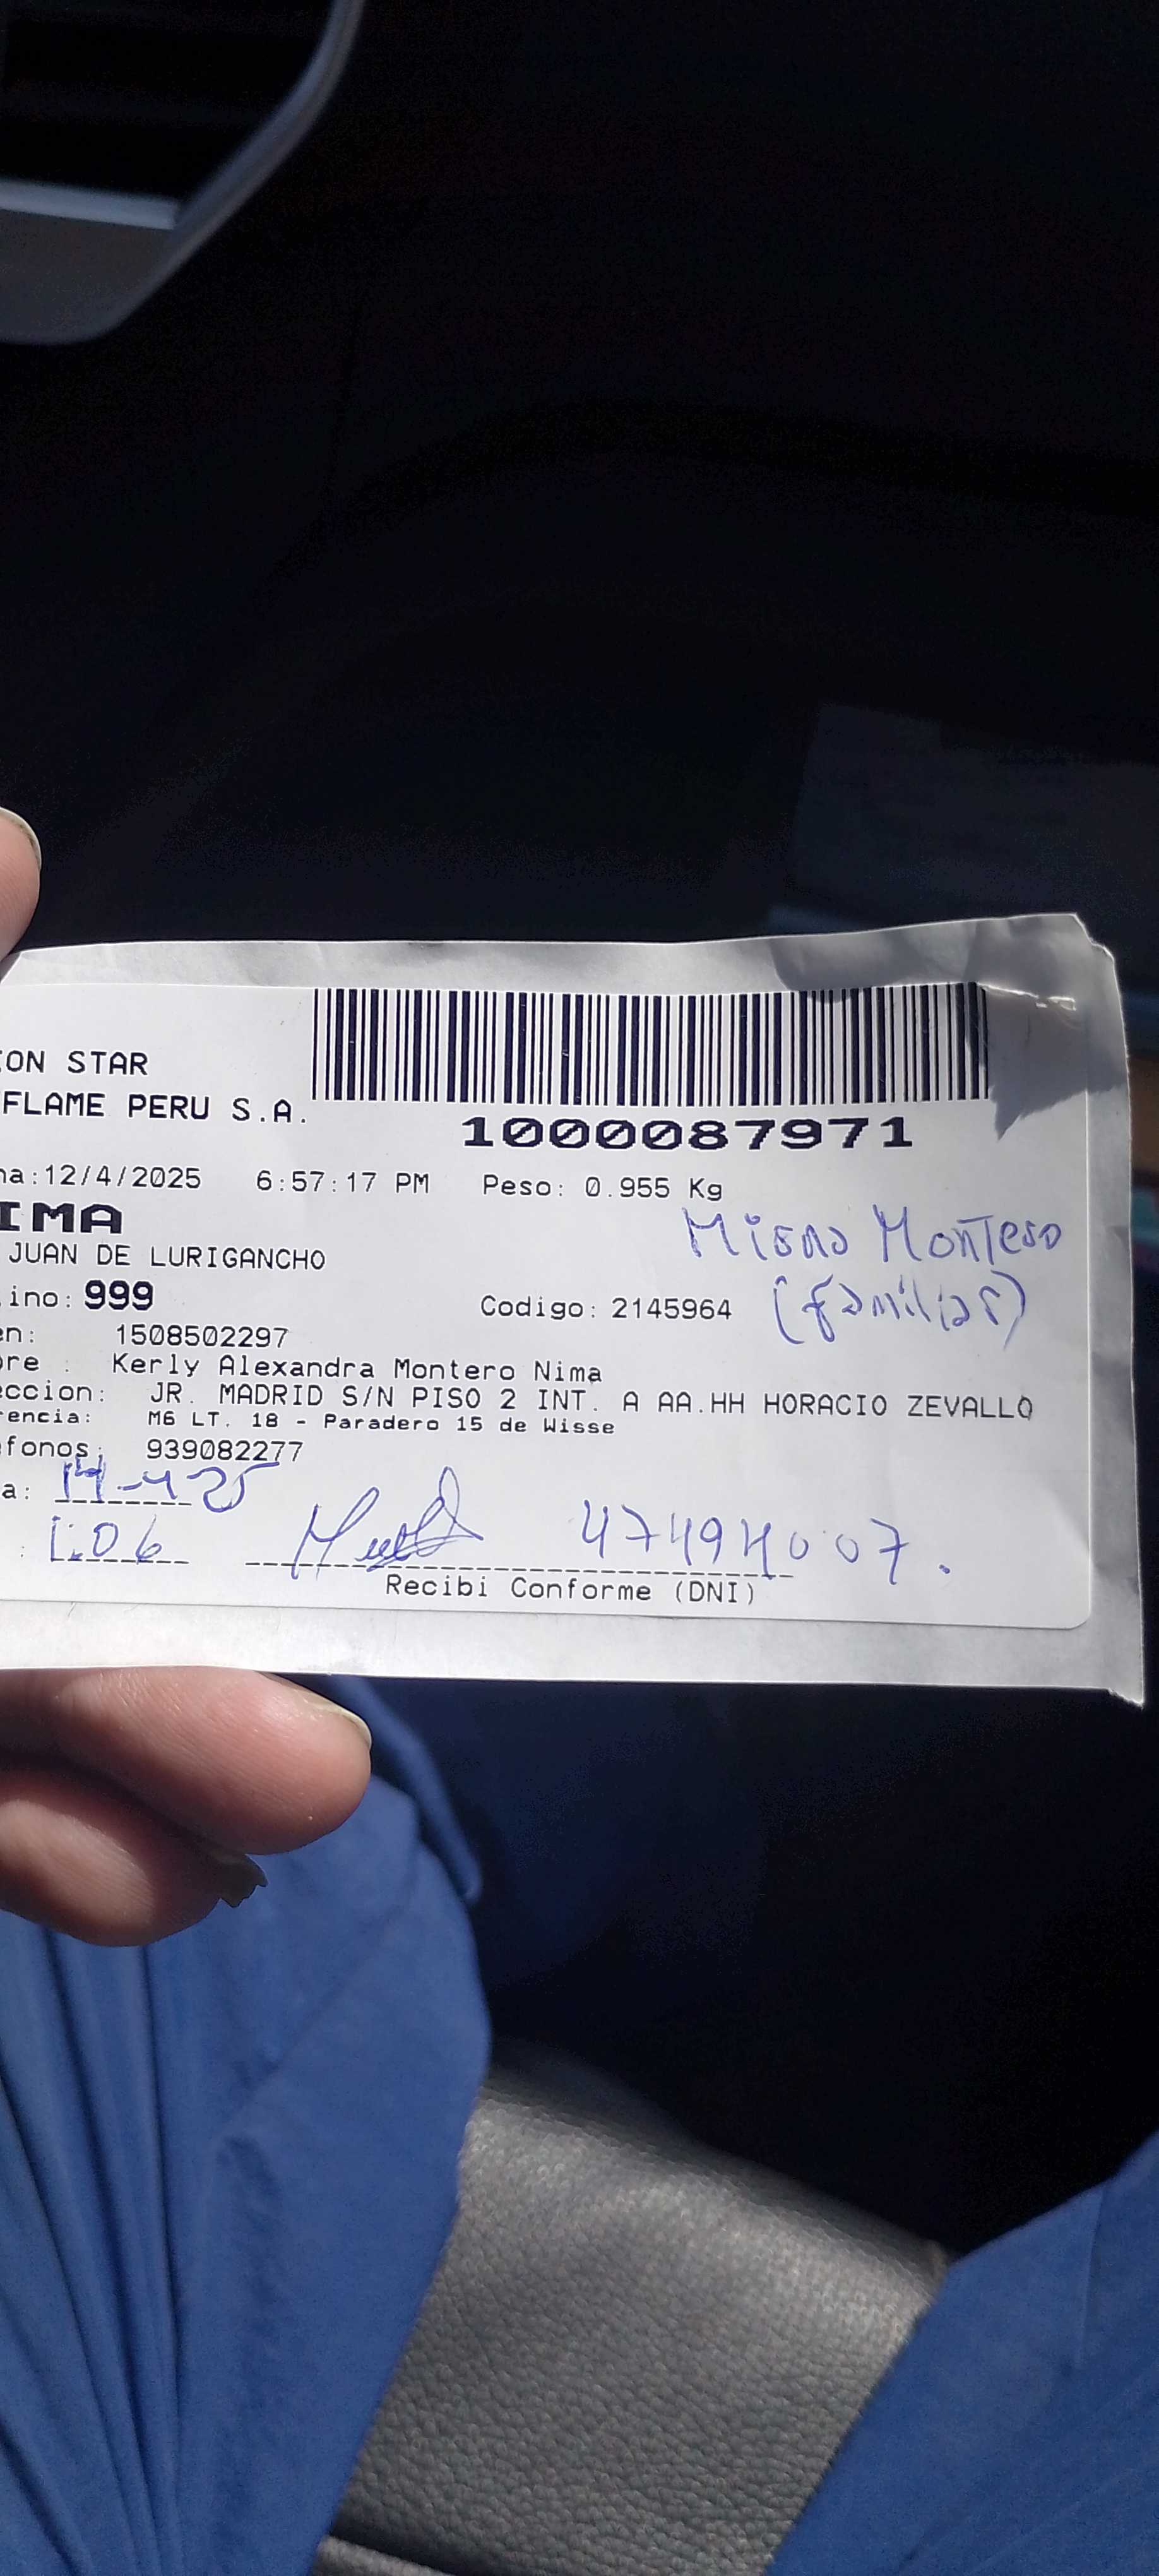 ON STAR
FLAME PERU S.A.
1000087971
na:12/4/2025 6:57:17 PM Peso: 0.955 Kg
IMA
JUAN DE LURIGANCHO
Montero
(familiar)
ino: 999
Codigo: 2145964
en: 1508502297
re : Kerly Alexandra Montero Nima
eccion: JR. MADRID S/N PISO 2 INT. A AA.HH HORACIO ZEVALLO
rencia: M6 LT. 18 - Paradero 15 de Wisse
fonos: 939082277
a: 14-4-25
: 1:06
47494007.
Recibi Conforme (DNI)